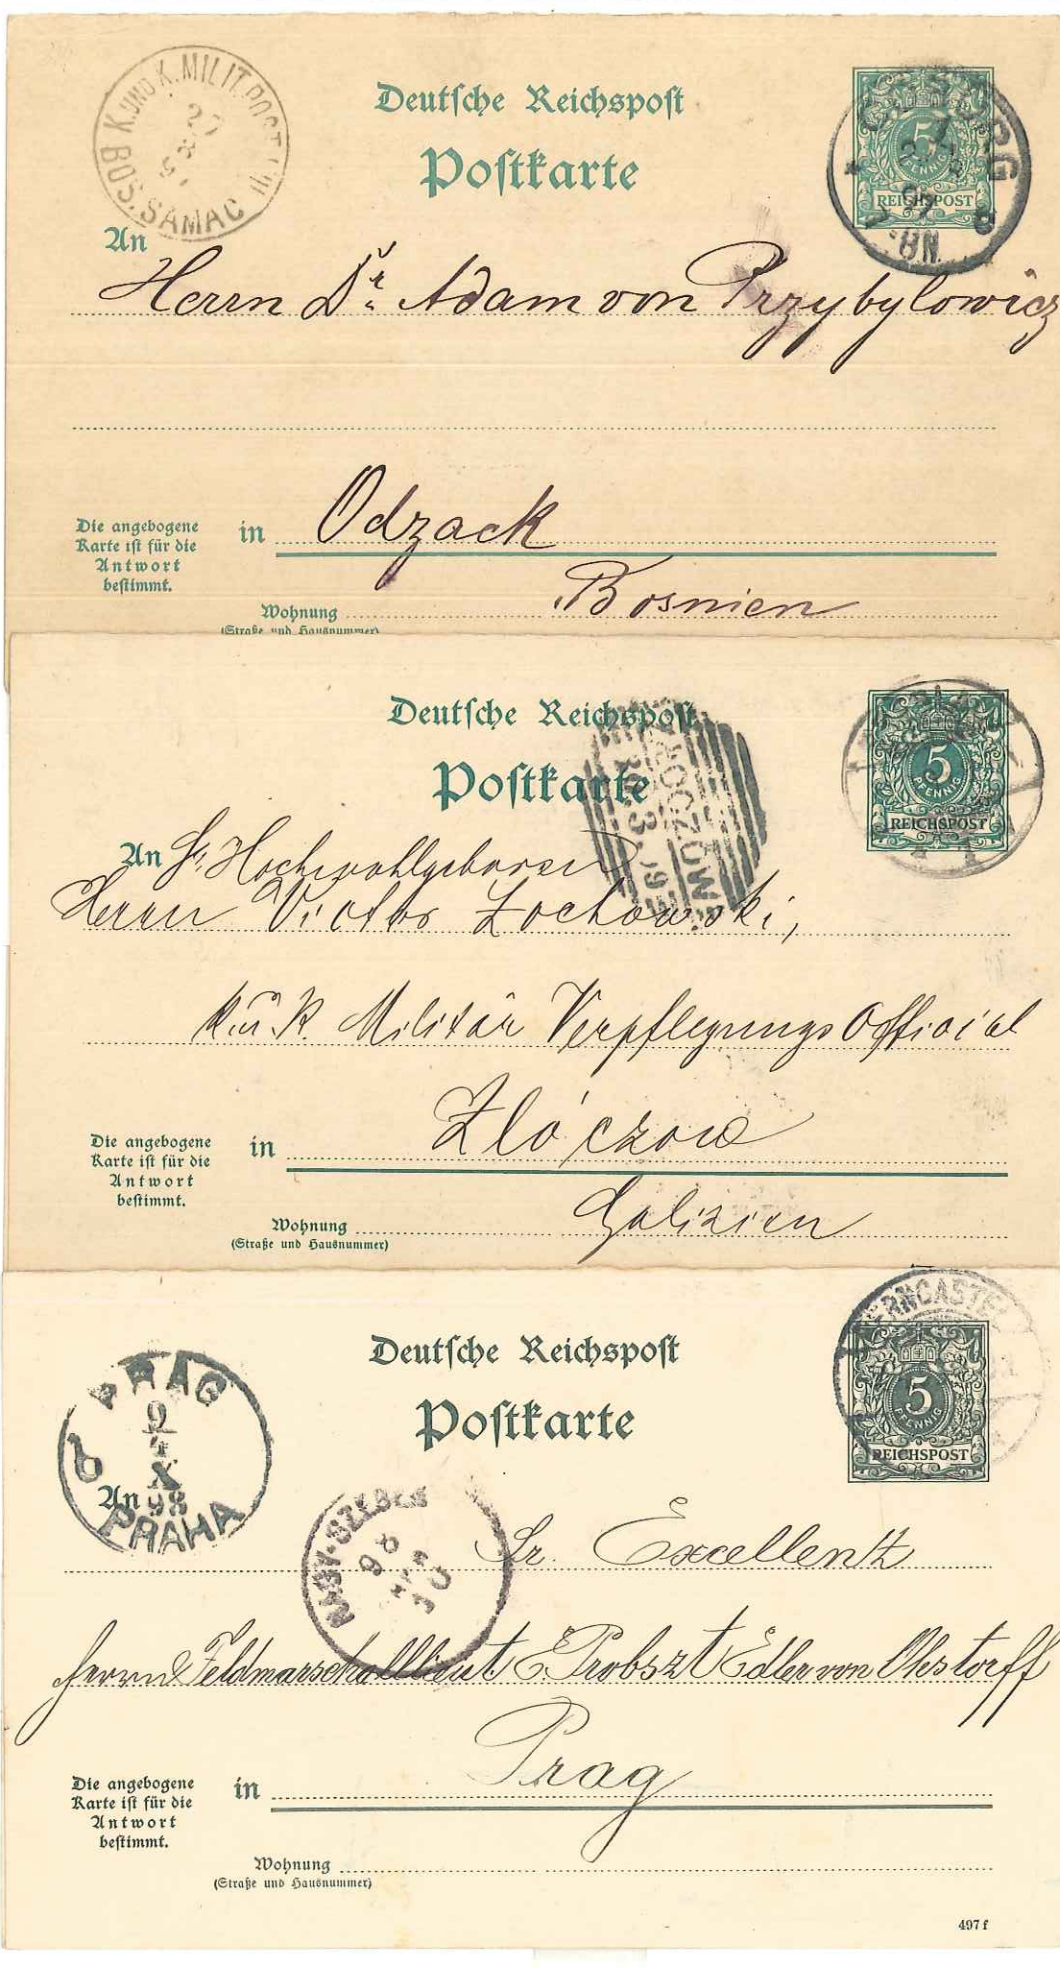 K. UND K. MILIT. POST
BOS. SAMAC
Deutsche Reichspost
Postkarte
5
PFENNIG
REICHSPOST
8-9N.
An
Herrn Dr. Adam von Przybylowicz
in Odzack
Bosnien
Die angebogene
Karte ist für die
Antwort
bestimmt.
Wohnung
(Straße und Hausnummer)
Deutsche Reichspost
Postkarte
5
PFENNIG
REICHSPOST
An Sr. Hochwohlgeboren
Herrn Victor Zochowski,
k. u. k. Militär Verpflegungs Official
in Zlóczow
Galizien
Die angebogene
Karte ist für die
Antwort
bestimmt.
Wohnung
(Straße und Hausnummer)
BERNCASTEL
Deutsche Reichspost
Postkarte
5
PFENNIG
REICHSPOST
PRAG
9
4
X
98
PRAHA
6
NAGY-SZEBEN
98
An
Sr. Excellentz
Herrn Feldmarschalllieut E. Probszt Edler von Ohstorff
in Prag
Die angebogene
Karte ist für die
Antwort
bestimmt.
Wohnung
(Straße und Hausnummer)
497 f